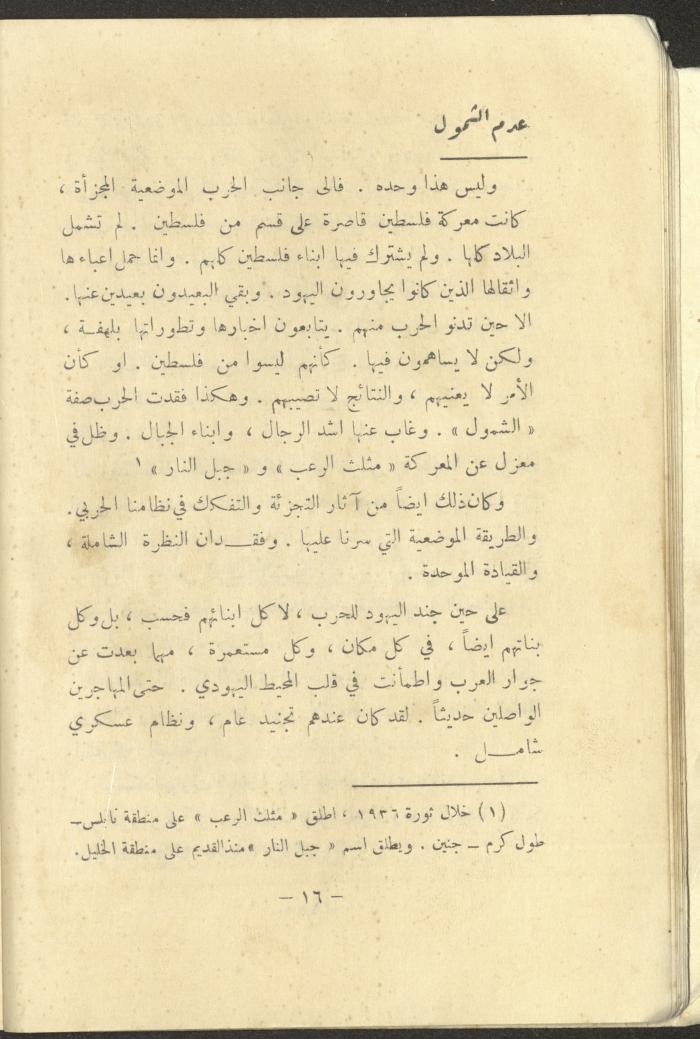 عدم الشمول
وليس هذا وحده . فالى جانب الحرب الموضعية المجزأة ،
كانت معركة فلسطين قاصرة على قسم من فلسطين . لم تشمل
البلاد كلها . ولم يشترك فيها ابناء فلسطين كلهم . وانما حمل اعباءها
واثقالها الذين كانوا يجاورون اليهود . وبقي البعيدون بعيدين عنها.
الا حين تدنو الحرب منهم . يتابعون اخبارها وتطوراتها بلهفة ،
ولكن لا يساهمون فيها . كأنهم ليسوا من فلسطين . او كأن
الأمر لا يعنيهم ، والنتائج لا تصيبهم . وهكذا فقدت الحرب صفة
« الشمول » . وغاب عنها اشد الرجال ، وابناء الجبال . وظل في
معزل عن المعركة « مثلث الرعب » و « جبل النار » ١
وكان ذلك ايضاً من آثار التجزئة والتفكك في نظامنا الحربي.
والطريقة الموضعية التي سرنا عليها . وفقدان النظرة الشاملة ،
والقيادة الموحدة .
على حين جند اليهود للحرب ، لا كل ابنائهم فحسب ، بل وكل
بناتهم ايضاً ، في كل مكان ، وكل مستعمرة ، مهما بعدت عن
جوار العرب واطمأنت في قلب المحيط اليهودي . حتى المهاجرين
الواصلين حديثاً . لقد كان عندهم تجنيد عام ، ونظام عسكري
شامل .
(١) خلال ثورة ١٩٣٦ ، اطلق « مثلث الرعب » على منطقة نابلس ـ
طول كرم ـ جنين . ويطلق اسم « جبل النار » منذ القديم على منطقة الخليل.
– ١٦ –